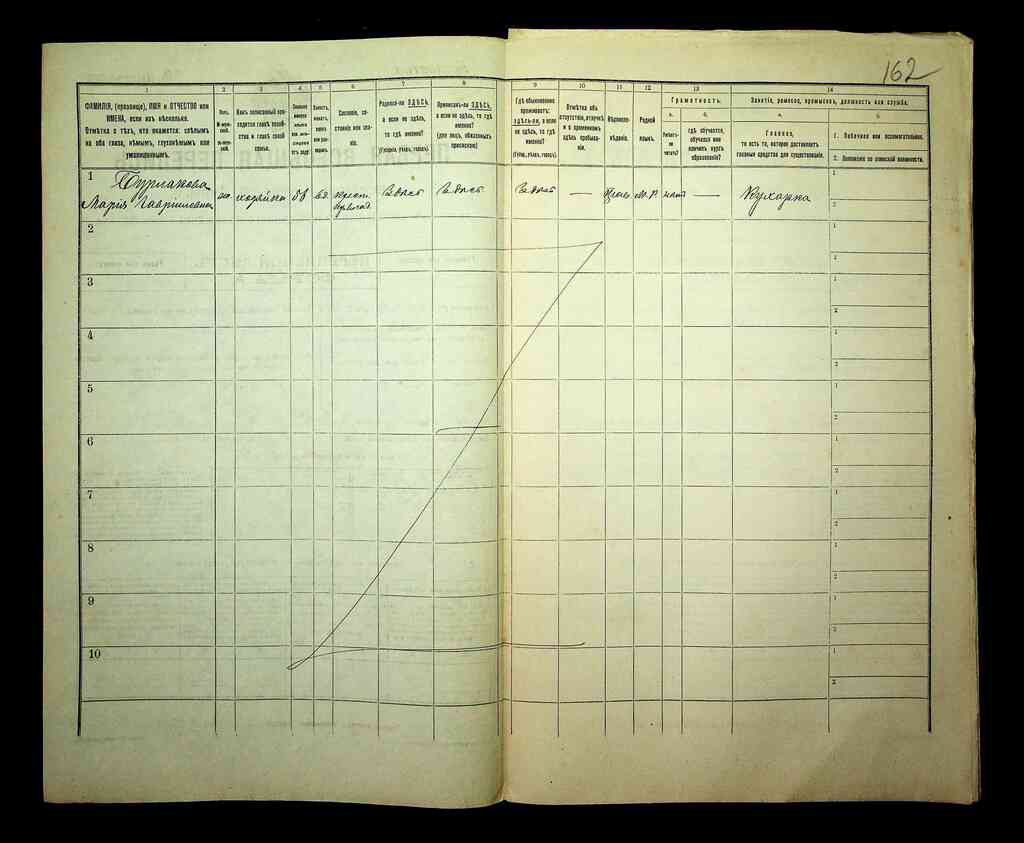 162
1 2 3 4 5 6 7 8 9 10 11 12 13 14
ФАМИЛІЯ, (прозвище), ИМЯ и ОТЧЕСТВО или
ИМЕНА, если ихъ нѣсколько.
Отмѣтка о тѣхъ, кто окажется: слѣпымъ
на оба глаза, нѣмымъ, глухонѣмымъ или
умалишеннымъ.
Полъ.
М-муж-
ской.
Ж-жен-
скій.
Какъ записанный при-
ходится главѣ хозяй-
ства и главѣ своей
семьи.
Сословіе, со-
стояніе или зва-
ніе.
Родился-ли ЗДѢСЬ,
а если не здѣсь,
то гдѣ именно?
(Губернія, уѣздъ, городъ).
Приписанъ-ли ЗДѢСЬ,
а если не здѣсь, то гдѣ
именно?
(для лицъ, обязанныхъ
припискою)
Гдѣ обыкновенно
проживаетъ:
здѣсь-ли, а если
не здѣсь, то гдѣ
именно?
(Губер., уѣздъ, городъ).
Отмѣтка объ
отсутствіи, отлучкѣ
и о временномъ
здѣсь пребыва-
ніи.
Вѣроиспо-
вѣданіе.
Родной
языкъ.
Грамотность.
а.
Умѣетъ-
ли
читать?
б.
гдѣ обучается,
обучался или
кончилъ курсъ
образованія?
Занятіе, ремесло, промыселъ, должность или служба.
а.
Главное,
то есть то, которое доставляетъ
главныя средства для существованія.
б.
1. Побочное или вспомогательное.
2. Положеніе по воинской повинности.
1
Марія Гавріиловна
хозяйка
58
крест.
Здѣсь
Здѣсь
Здѣсь
—
нѣтъ
—
Кухарка
1
2
2
1
2
3
1
2
4
1
2
5
1
2
6
1
2
7
1
2
8
1
2
9
1
2
10
1
2